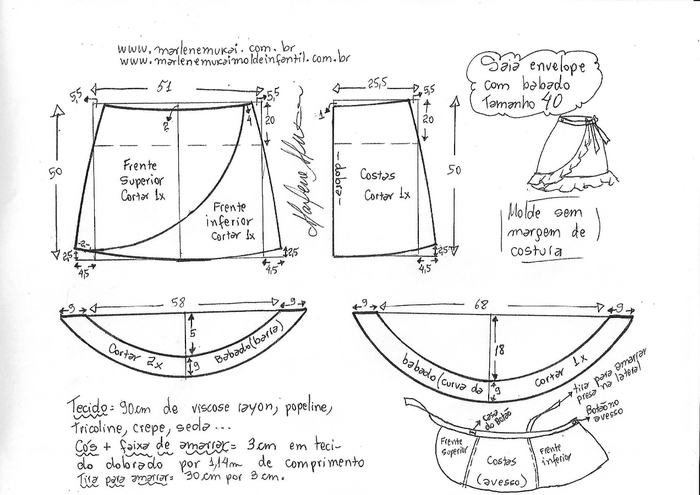 www.marlenemukai.com.br
www.marlenemukaimoldeinfantil.com.br
51
5,5
5,5
2
4
20
50
Frente
Superior
Cortar 1x
Frente
inferior
Cortar 1x
2
2,5
2,5
4,5
4,5
Marlene Mukai
25,5
5,5
1
20
50
dobra
Costas
Cortar 1x
2,5
4,5
Saia envelope
com babado
Tamanho 40
Molde sem
margem de
costura
9
58
9
5
9
Cortar 2x
Babado (barra)
9
68
9
18
9
babado (curva da
Cortar 1x
Tecido = 90cm de viscose rayon, popeline,
Tricoline, crepe, seda...
Cós + faixa de amarrar = 3 cm em teci-
do dobrado por 1,14m de comprimento
Tira para amarrar = 30 cm por 3 cm.
tira para amarrar
presa na lateral
casa
do Botão
Botão no
avesso
Frente
Superior
Costas
(avesso)
Frente
inferior